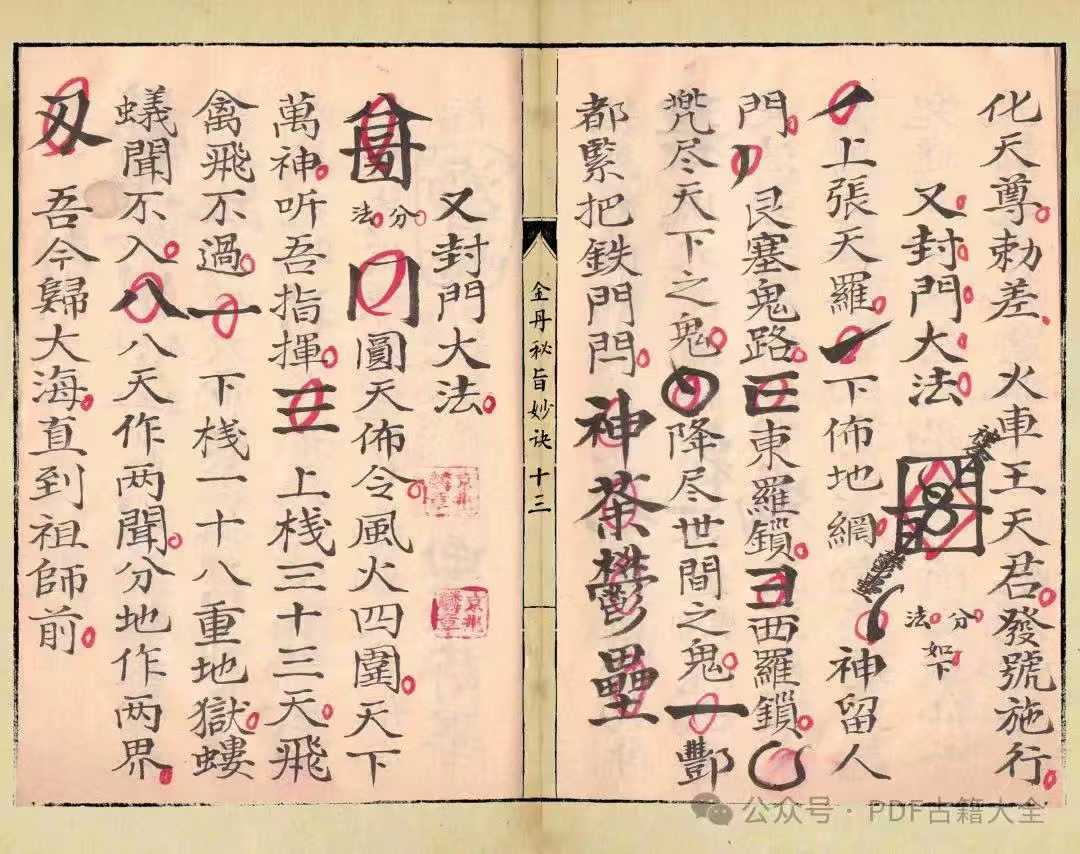 化天尊勅差火車王天君發號施行
又封門大法
分法如下
神留人
上張天羅下佈地網
門艮塞鬼路東羅鎖西羅鎖
咒尽天下之鬼降尽世間之鬼一酆
都緊把鉄門閂神荼欝壘
金丹秘旨妙诀 十三
又封門大法
分法圓天佈令風火四圍天下
萬神听吾指揮三上栈三十三天飛
禽飛不過一下栈一十八重地獄螻
蟻聞不入八八天作两聞分地作两界
吾今歸大海直到祖師前
公众号·PDF古籍大全